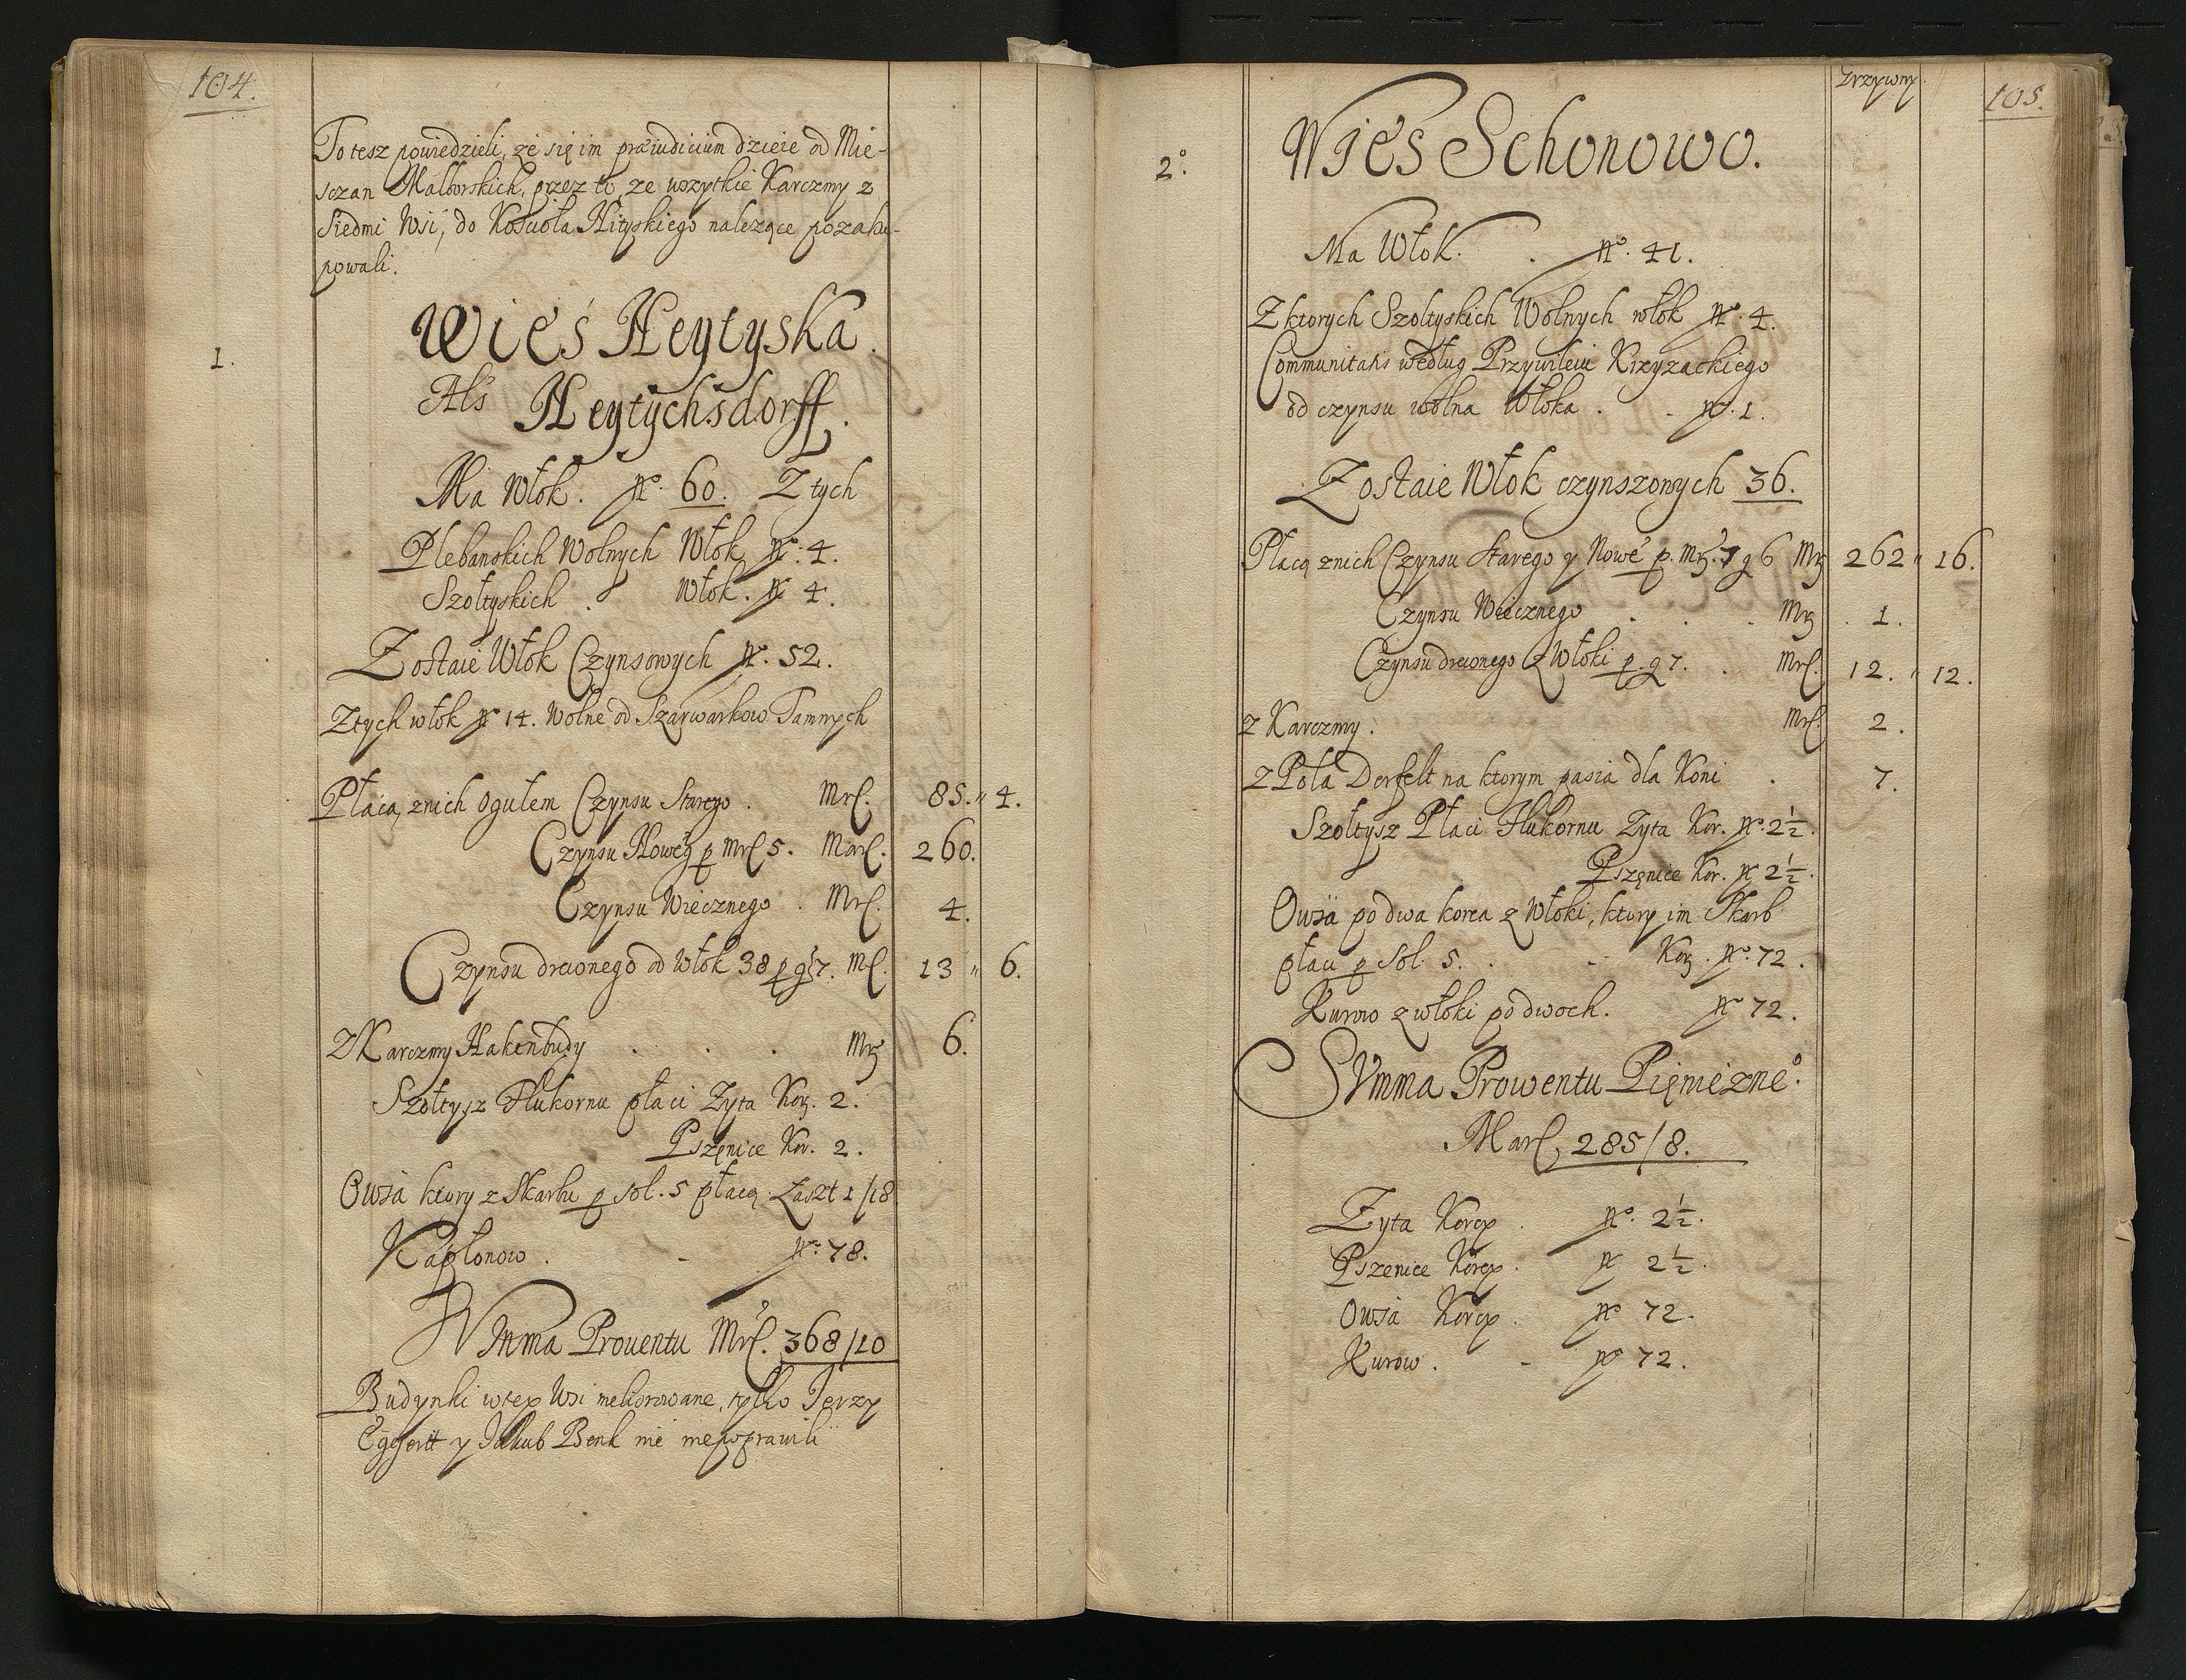 104.
To tesz powiedzieli, że się im præiudicium dzieie od Mie-
sczan Malborskich, przez to, ze wszytkie Karczmy z
Siedmi Wsi, do Kościoła Nityskiego nalezące pozaku-
powali.
1.
Wies Neytyska
Als Neytychsdorff.
Ma Włok. No. 60. Z tych
Plebanskich Wolnych Włok No. 4.
Szołtyskich . Włok. No 4.
Zostaie Włok Czynsowych No. 52.
Z tych włok No 14. Wolne od Szarwarkow Tamnych
Płacą z nich ogułem Czynsu Starego . Mrc. 85. " 4.
Czynsu Noweg p Mrc 5. Marc. 260.
Czynsu Wiecznego . Mrc. 4.
Czynsu drewnego od Włok 38 p g 7. Mc. 13 " 6.
z Karczmy Hakenbudy . . . Mrg 6.
Szołtysz Plukornu płaci Zyta Korz. 2.
Pszęnice Kor. 2.
Owsa ktory z Skarbu p sol. 5 płacą. Łaszt 1/18
Kapłonow . - No. 78.
Summa Prouentu Mrc. 368/10
Budynki w tey Wsi meliorowane, tylko Jerzy
y Jakub Benk nie niepoprawili
Grzywny
105.
2o.
Wies Schonowo.
Ma Włok. . No. 41.
Z ktorych Szołtyskich Wolnych włok No. 4.
Communitatis według Przywileiu Krzyzackiego
od czynsu wolna Włoka . - No. 1.
Zostaie Włok czynszonych 36.
Płacą z nich Czynsu Starego y Nowe p. Mrg. 7 g 6 Mrg 262 " 16.
Czynsu Wiecznego . . . Mrg . 1.
Czynsu drewnego z Włoki p g 7. . Mrc. 12. " 12.
z Karczmy. Mrc. 2.
z Pola Derfelt na ktorym pasia dla Koni . 7.
Szołtysz Płaci Plukornu Zyta Kor. No. 2½.
Pszęnice Kor. No 2½.
Owsa po dwa korca z Włoki, ktory im Skarb
płaci p sol. 5. . - Korz. No. 72.
Kurow z włoki po dwoch. No 72.
Summa Prowentu Pięnieżneo.
Marc. 285/8.
Zyta Korcy . No. 2½.
Pszenice Korcy . No 2½.
Owsa Korcy . No 72.
Kurow . - No 72.